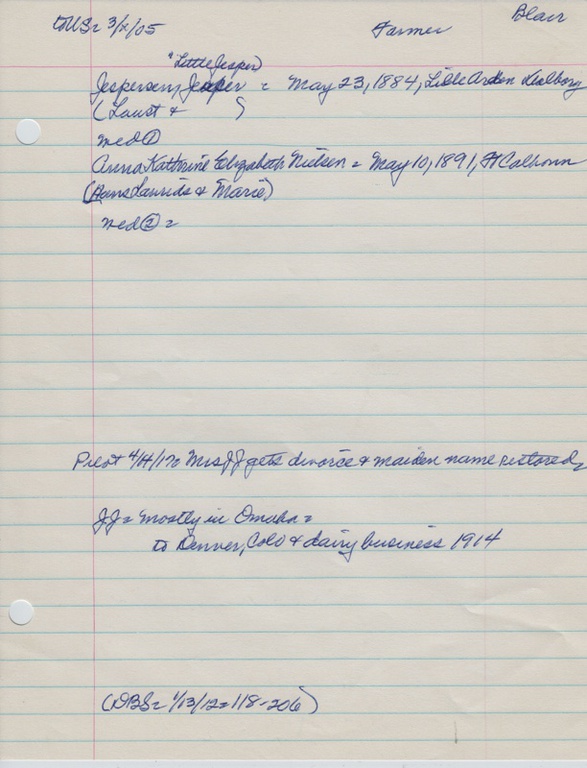 Blair
to US = 3/x/05 Farmer
"Little Jesper"
Jespersen, Jesper = May 23, 1884, Lille Arden Aalborg
(Laust & )
wed ①
Anna Kathrine Elizabeth Nielsen = May 10, 1891, Ft Calhoun
(Hans Laurids & Marie)
wed ② =
4/4/17 = Mrs JJ gets divorce & maiden name restored
JJ = mostly in Omaha =
to Denver, Colo & dairy business 1914
(DBS = 1/13/12 = 118-206)